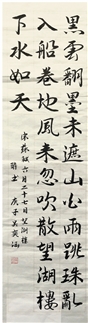 黑雲翻墨未遮山白雨跳珠亂
入船卷地風來忽吹散望湖樓
下水如天
宋蘇軾六月二十七日望湖樓
醉書 庚子